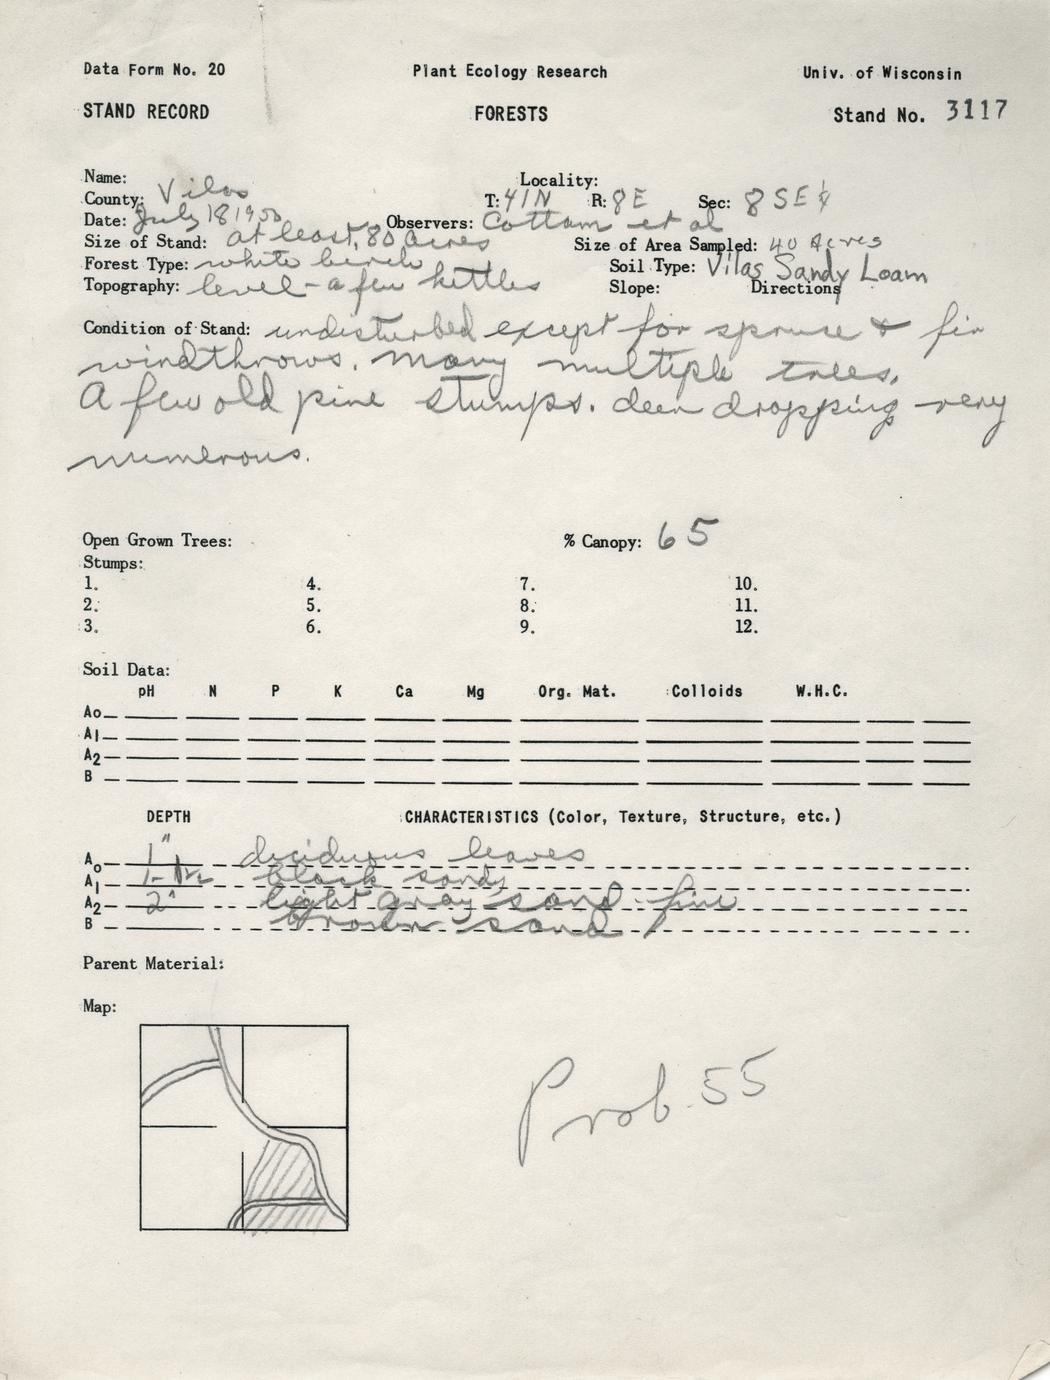 Data Form No. 20 Plant Ecology Research Univ. of Wisconsin
STAND RECORD FORESTS Stand No. 3117
Name: Locality:
County: Vilas T: 41N R: 8E Sec: 8 SE¼
Date: July 18 1950 Observers: Cottam et al
Size of Stand: at least 80 acres Size of Area Sampled: 40 Acres
Forest Type: white birch Soil Type: Vilas Sandy Loam
Topography: level - a few kettles Slope: Directions
Condition of Stand: undisturbed except for spruce & fir
windthrows. many multiple trees.
A few old pine stumps. deer dropping very
numerous.
Open Grown Trees: % Canopy: 65
Stumps:
1. 4. 7. 10.
2. 5. 8. 11.
3. 6. 9. 12.
Soil Data:
pH N P K Ca Mg Org. Mat. Colloids W.H.C.
Ao
A1
A2
B
DEPTH CHARACTERISTICS (Color, Texture, Structure, etc.)
Ao 1" deciduous leaves
A1 black sandy
A2 2" light gray sand - fine
B brown sand
Parent Material:
Map:
Prob. 55